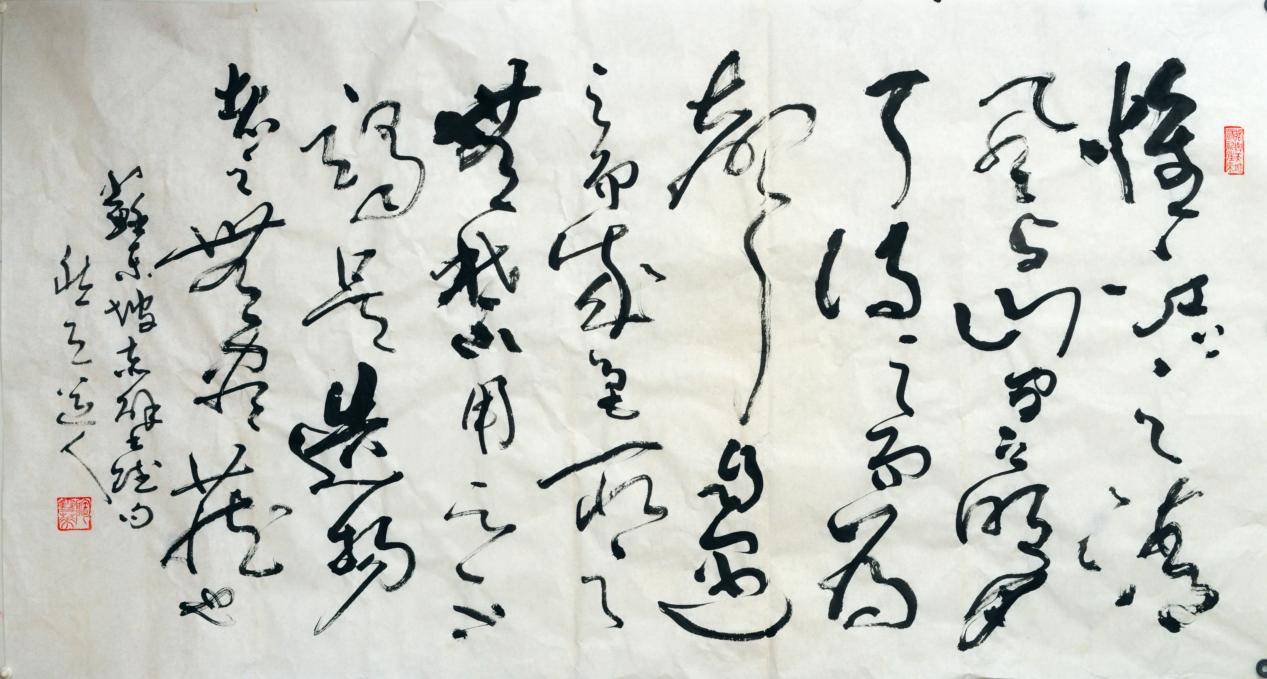 惟江上之清
風与山間之明月
耳得之而為
聲目遇
之而成色取之
無禁用之不
竭是造物
者之無盡藏也
蘇东坡赤壁賦句
道人